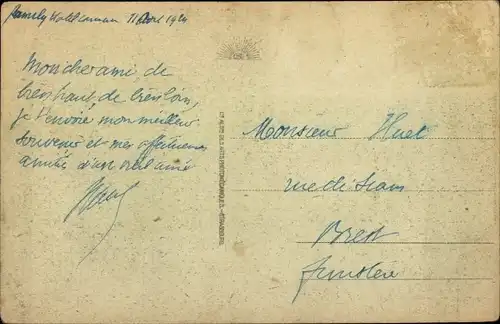 11 Avril 1924
Mon cher ami, de
très haut, de très loin,
je t'envoie mon meilleur
souvenir et mes affectueuses
amitiés d'un vieil ami
Monsieur Huet
rue de Siam
Brest
Finistère